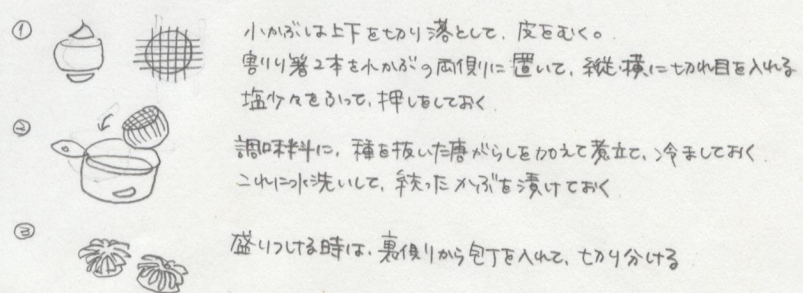 ①
小かぶは上下を切り落として、皮をむく。
割り箸2本を小かぶの両側に置いて、縦・横に切れ目を入れる
塩少々をふって、押しをしておく
②
調味料に、種を抜いた唐がらしを加えて煮立て、冷ましておく
これに水洗いして、絞ったかぶを漬けておく
③
盛りつける時は、裏側から包丁を入れて、切り分ける